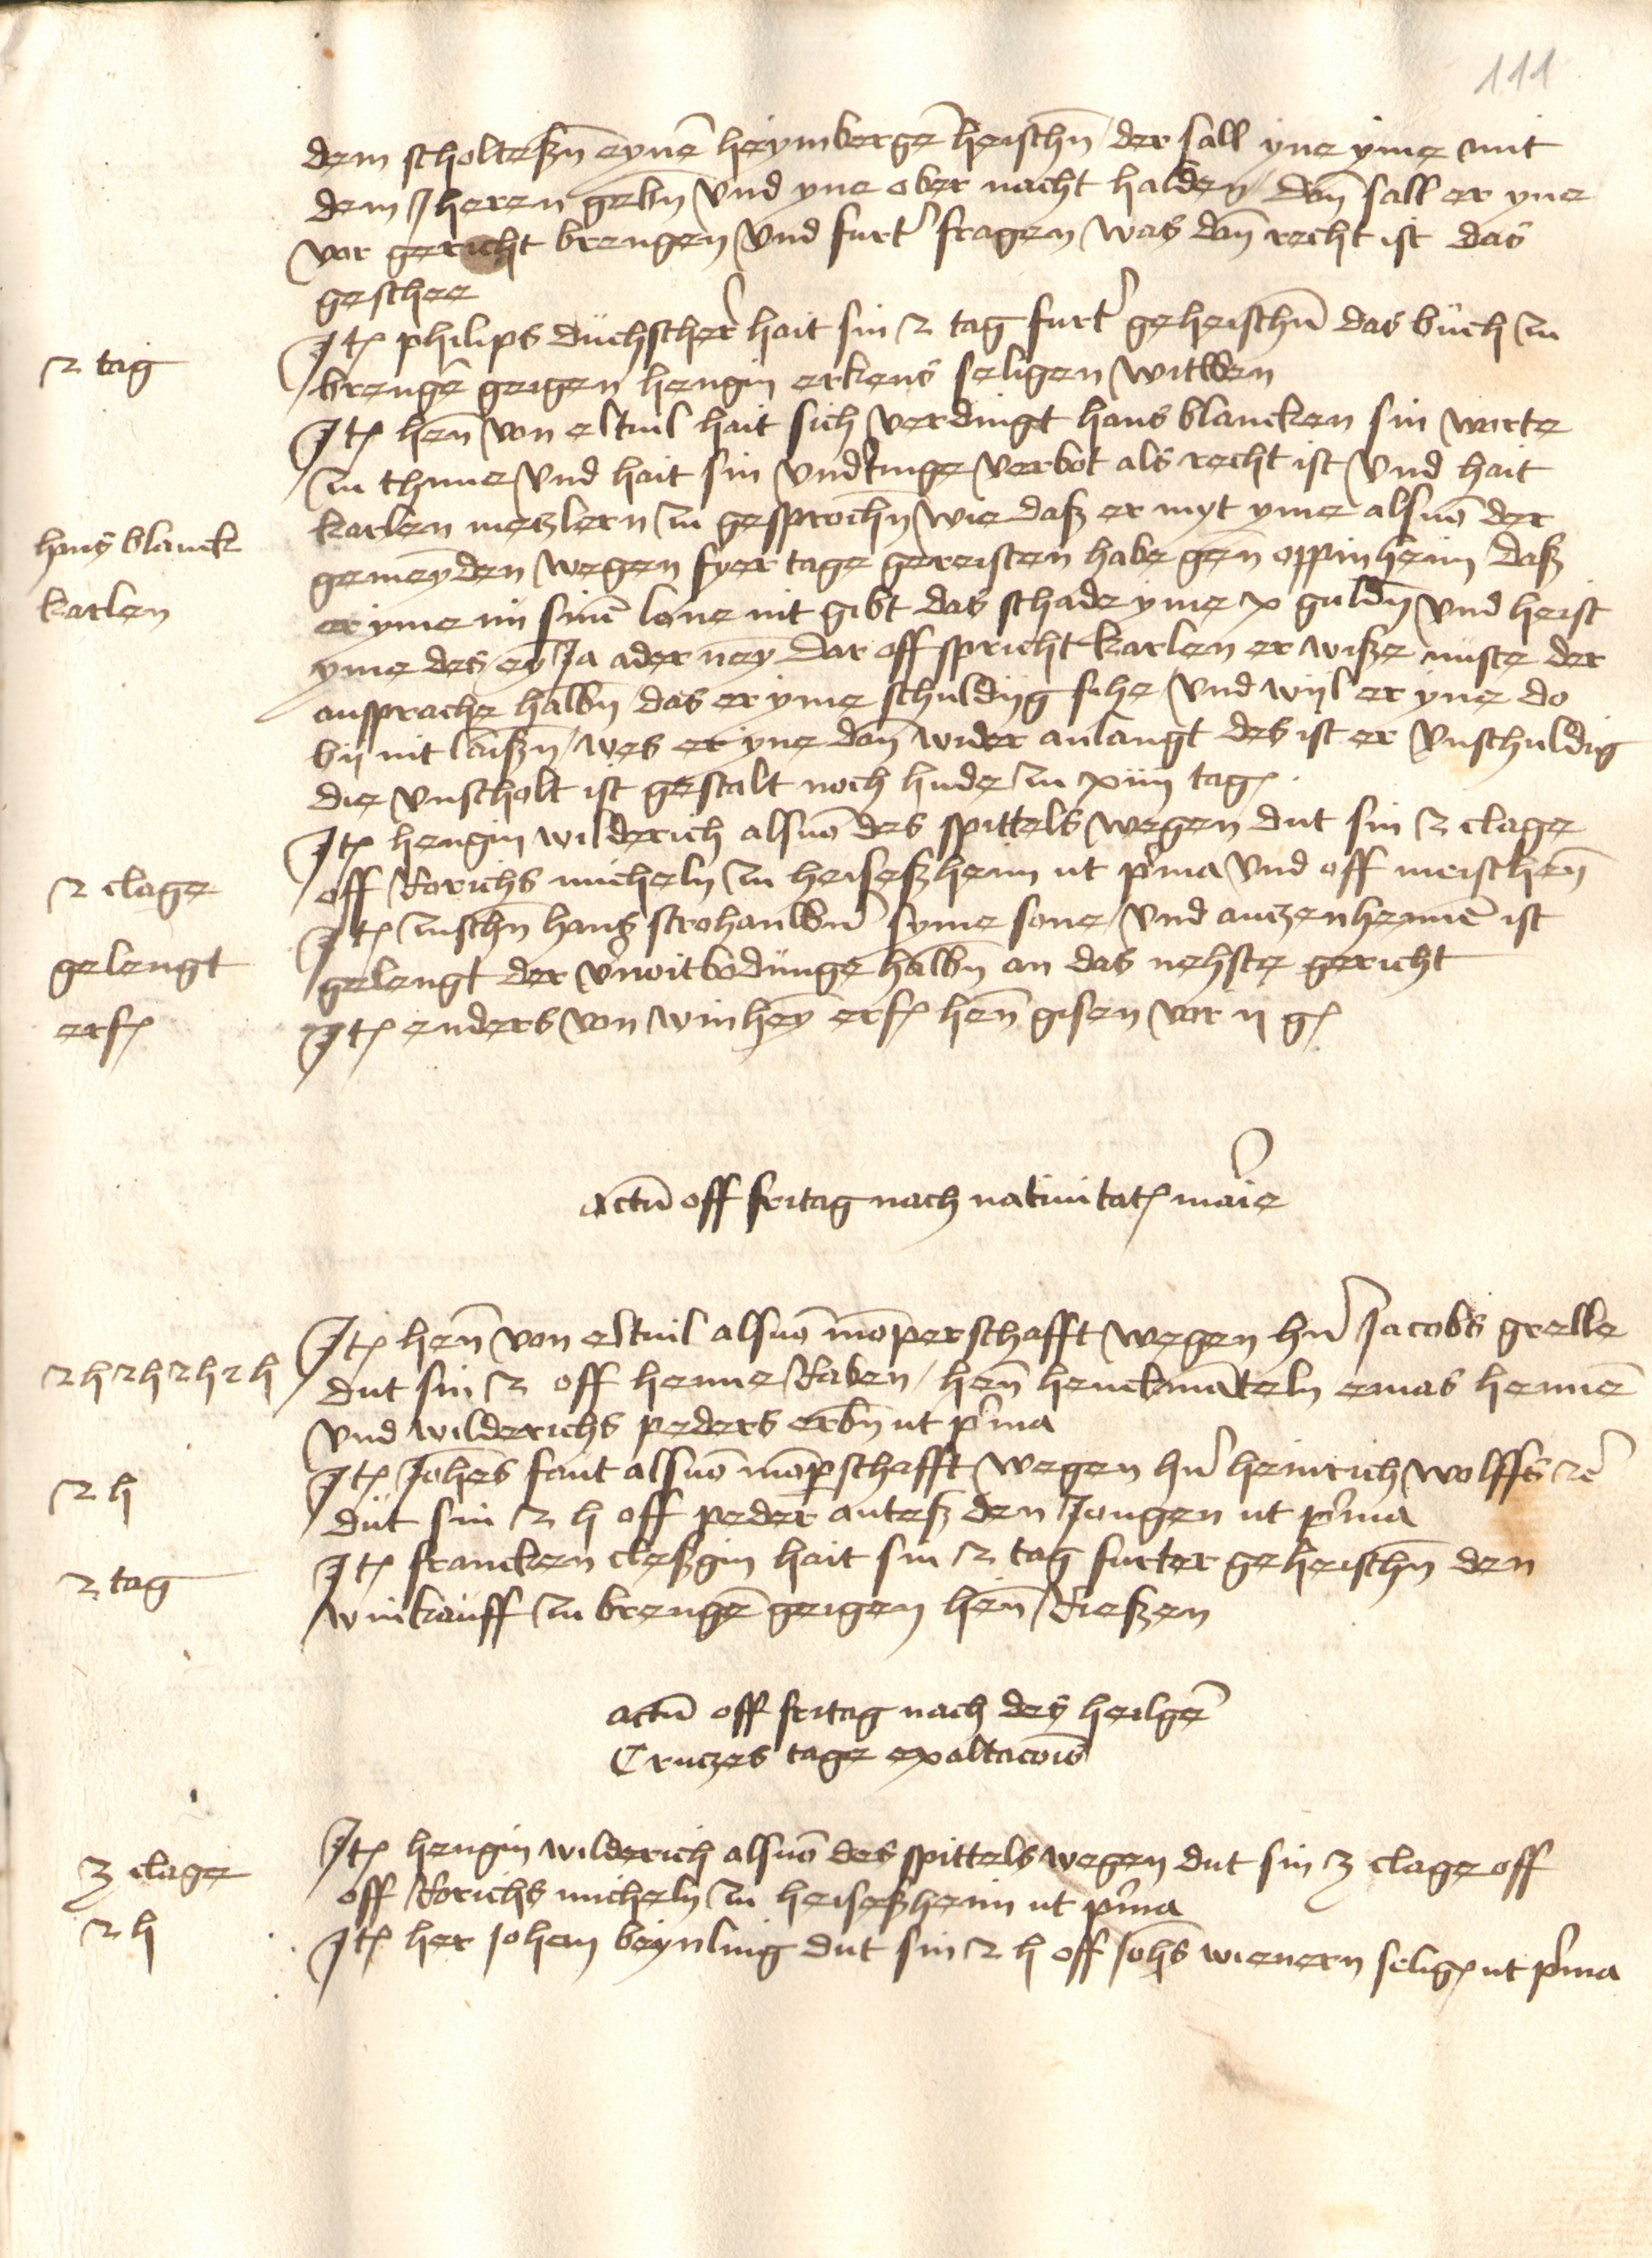 111
dem scholteßn̄ eynē heymbergē heischn̄ der sall yne yme mit
dem Jheren gebn̄ vnd yne ober nacht halden / dan̄ sall er yne
vor gericht brengen vnd furt' fragen was dan̄ recht ist das
geschee
2 tag
Jtꝭ philips duchscher' hait sin 2 tag furt' geheischn̄ das buch zu
brengē geigen hengin erkens seligen witwen
Jtꝭ hen̄ von eltuil hait sich verdingt hans blancken sin worte
zu thune vnd hait sin vnd'tinge verbot als recht ist vnd hait
hans blanck
karlen metzlern zu gesprochn̄ wie daß er myt yme als vō der
karlen
gemeyden wegen fyer tage gereisten habe gen̄ oppinheim daß
er yme nū sinē lone nit gibt das schade yme x guldn̄ vnd heist
yme des / ey Ja ader ney Dar off spricht karlen er wiße nuste der
ansprache halbn̄ das er yme schuldijg sihe / vnd wijl er yne do
bij nit laißn̄ / wes er yne dan̄ wider anlangt des ist er vnschuldig
die vnscholt ist gestalt noch hude zu xiiij tagꝭ
Jtꝭ hengin wilderich als vō des spittels wegen dut sin 2 clage
2 clage
off Rorichs micheln zu heiseßheim ut p'ma vnd off meischen̄
Jtꝭ zuschn̄ hans strohanbūn syme sone / vnd anczenhennē ist
gelengt
gelengt der v'noitbodunge halbn̄ an das nehste gericht
erfꝭ
Jtꝭ enders von winhey erfꝭ hen̄ gisen vor ij gꝭ
actū off fritag nach natiuitatꝭ mar'ie
Jtꝭ hen̄ von eltuil als vō mōperschafft wegen hn' Jacobs grelle
2 h 2 h 2 h 2 h
dut sin 2 off henne Raben / hen̄ henckmāteln emas hennē
vnd wilderichs peders erbn̄ ut p'ma
2 h
Jtꝭ Johēs faut als vō mōp̱schafft wegen hn' heinrich wolffs zc'
dut sin 2 h off peder anteß den Jongen ut p'ma
2 tag
Jtꝭ francken cleßgin hait sin 2 tag furter geheischn̄ den
winkauff zu brengē geigen hen̄ Rießen
actū off fritag nach des heilgē
Cruczes tage exaltacōis
3 clage
Jtꝭ hengin wilderich als vō des spittels wegen dut sin 3 clage off
off Rorichs micheln zu heiseßheim ut p'ma
2 h
Jtꝭ her johan beynling dut sin 2 h off johs̄ wienern seligꝭ ut p'ma